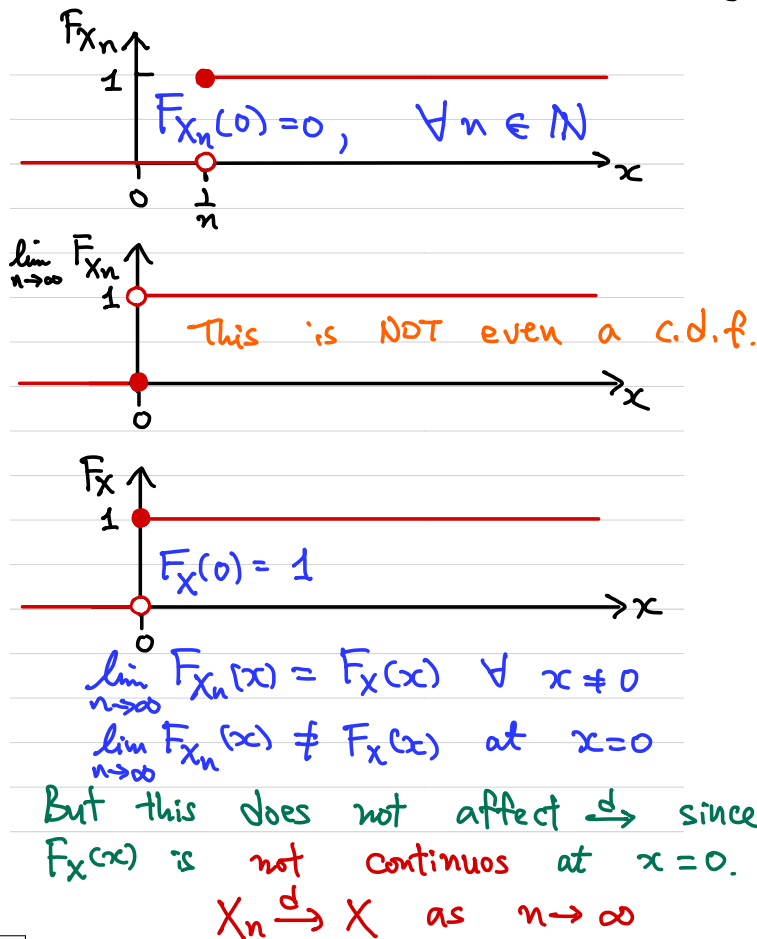 F_{X_n}
1
F_{X_n}(0) = 0, ∀ n ∈ ℕ
x
0 1/n
lim_{n→∞} F_{X_n}
1
This is NOT even a c.d.f.
x
0
F_X
1
F_X(0) = 1
x
0
lim_{n→∞} F_{X_n}(x) = F_X(x) ∀ x ≠ 0
lim_{n→∞} F_{X_n}(x) ≠ F_X(x) at x=0
But this does not affect →^d since
F_X(x) is not continuos at x = 0.
X_n →^d X as n→∞